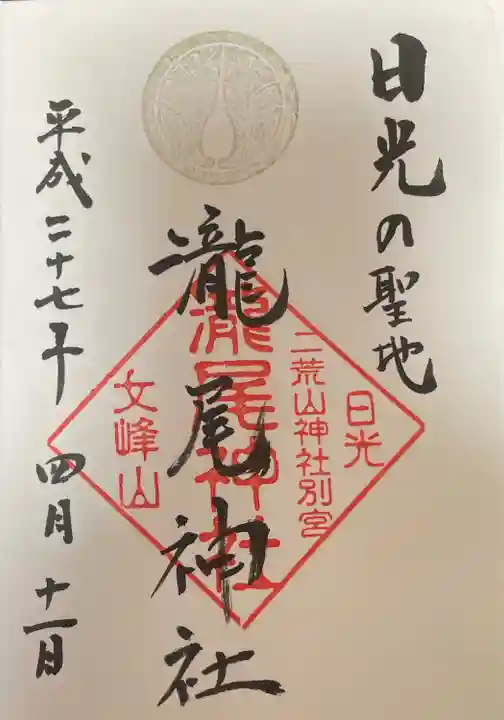 日光の聖地
日光
二荒山神社別宮
瀧尾神社
瀧尾神社
女峰山
平成二十七年 四月 十一日